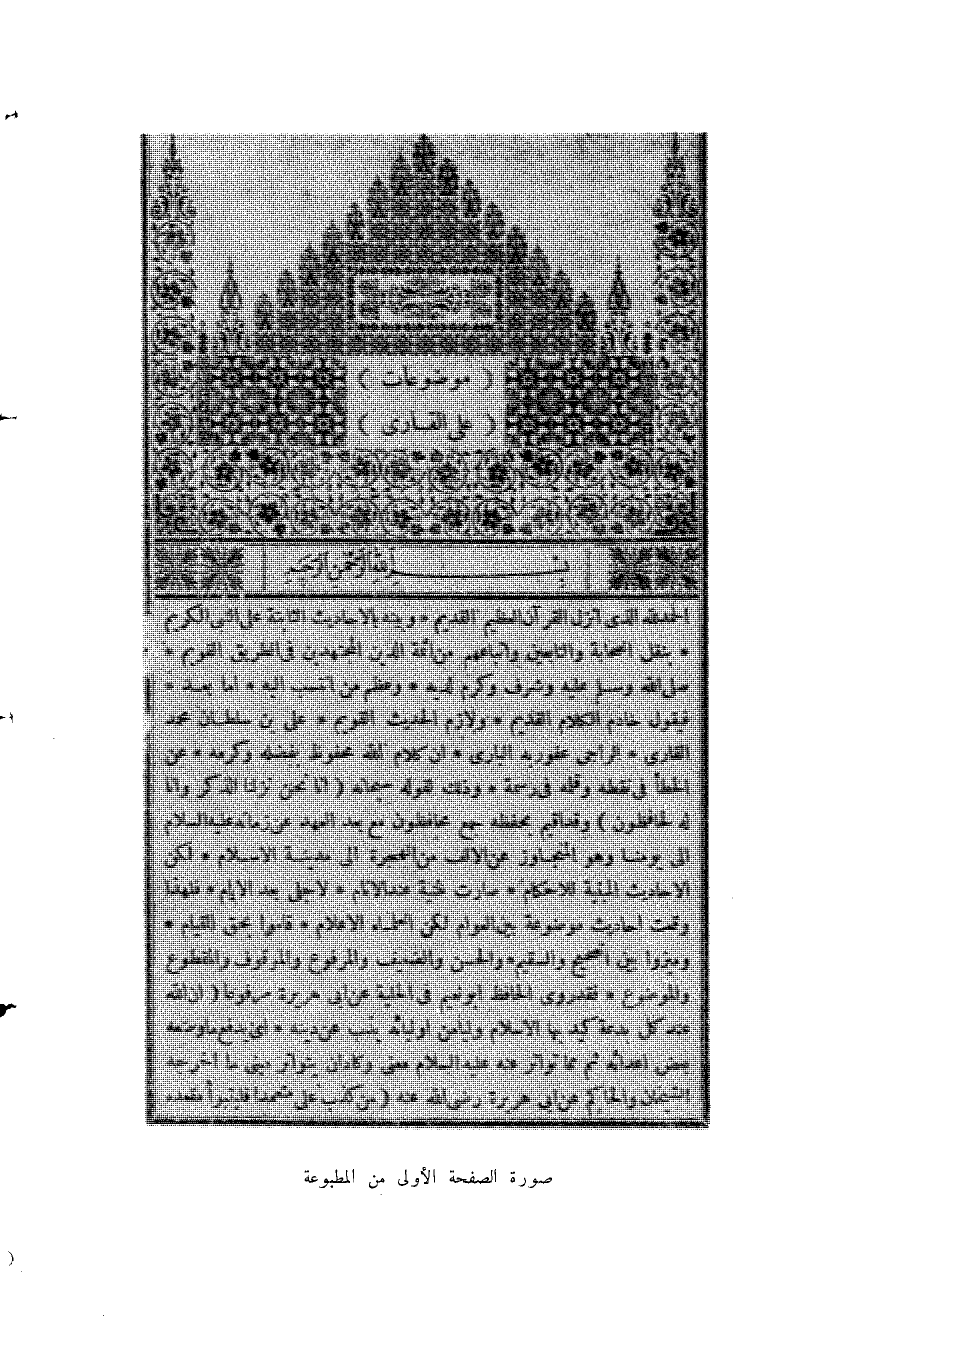 ( موضوعات )
( على القارى )
بسم الله الرحمن الرحيم
الحمدلله الذى انزل القرآن العظيم القديم * وبينه بالاحاديث الثابتة على النبى الكريم
* بنقل الصحابة والتابعين واتباعهم من أئمة الدين المجتهدين فى الطريق القويم *
صلى الله وسلم عليه وشرف وكرم لديه * وعظم من انتسب اليه * اما بعد *
فيقول خادم الكلام القديم * ولازم الحديث القويم * على بن سلطان محمد
القارى * الراجى عفو ربه البارى * ان كلام الله محفوظ بفضله وكرمه * عن
الخطأ فى نقطه وقله فى رسمه * وذلك لقوله سبحانه ( انا نحن نزلنا الذكر وانا
له لحافظون ) وقد اقيم بحفظه جمع محافظون مع بعد العهد عن زمانه عليه السلام
الى يومنا وهو المتجاوز عن الالف من الهجرة الى مدينة الاسلام * لكن
الاحاديث المبينة للاحكام * صارت ظنية عند الانام * لاجل بعد الايام * فلهذا
وقعت احاديث موضوعة بين العوام لكن العلماء الاعلام * قاموا بحق القيام *
وميزوا بين الصحيح والسقيم * والحسن والضعيف والمرفوع والموقوف والمقطوع
والموضوع * فقد روى الحافظ ابو نعيم فى الحلية عن ابى هريرة مرفوعا ( ان لله
عند كل بدعة كيد بها الاسلام وليا من اوليائه يذب عن دينه * اى يدفع ما وضعه
بعض اعدائه ثم مما تواتر عنه عليه السلام معنى وكاد ان يتواتر مبنى ما اخرجه
الشيخان والحاكم عن ابى هريرة رضى الله عنه ( من كذب على متعمدا فليتبوأ مقعده
صورة الصفحة الأولى من المطبوعة